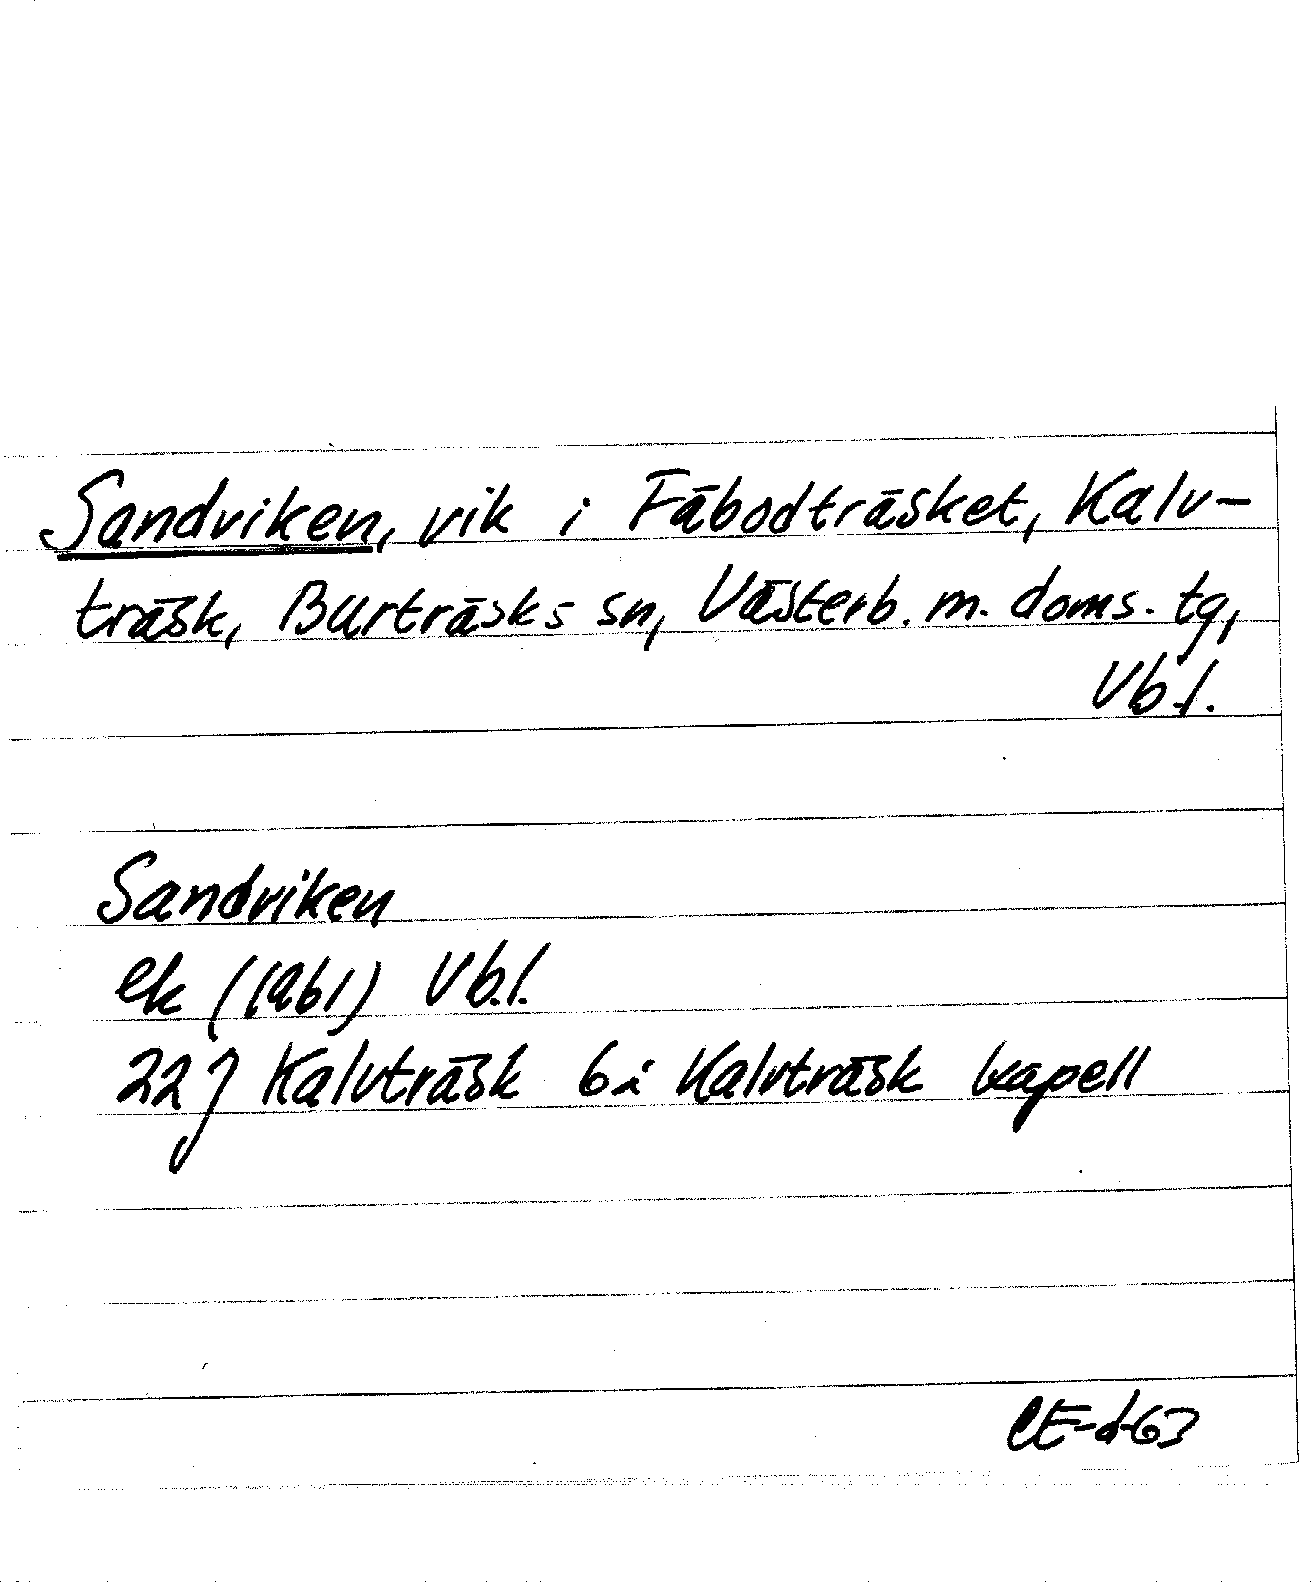 Sandviken, vik i Fäbodträsket, Kalv-
träsk, Burträsks sn, Västerb. m. doms. tg,
Vb.l.
Sandviken
ek (1961) Vb.l.
22 J Kalvträsk 6i Kalvträsk kapell
CE-d-63